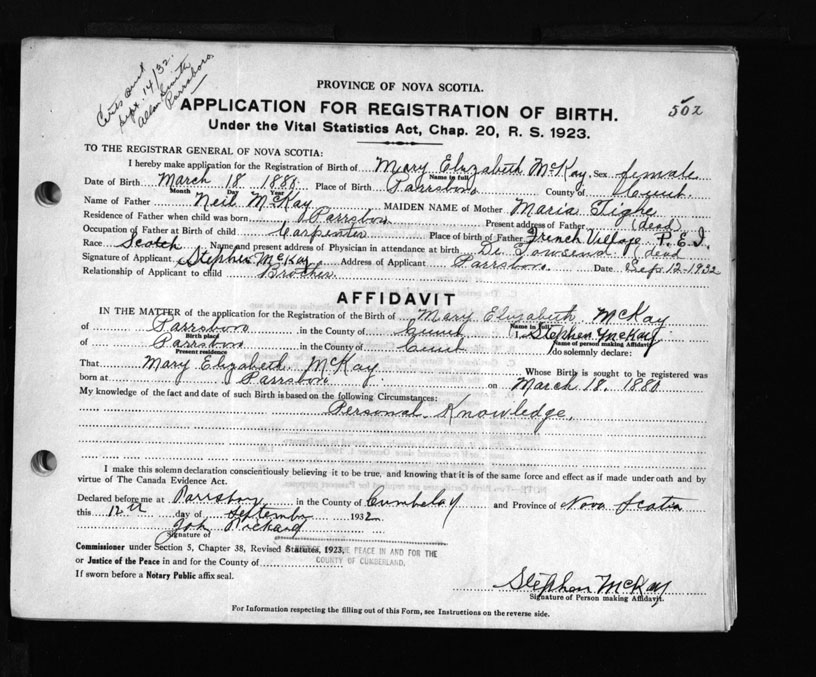 Sept. 14/32.
Allan Smith
Parrsboro
PROVINCE OF NOVA SCOTIA.
APPLICATION FOR REGISTRATION OF BIRTH.
502
Under the Vital Statistics Act, Chap. 20, R. S. 1923.
TO THE REGISTRAR GENERAL OF NOVA SCOTIA:
I hereby make application for the Registration of Birth of Mary Elizabeth McKay, Sex female
Name in full
Date of Birth March 18 1880 Place of Birth Parrsboro County of Cumb.
Month Day Year
Name of Father Neil McKay MAIDEN NAME of Mother Maria Tighe
Residence of Father when child was born Parrsboro Present address of Father (dead)
Occupation of Father at Birth of child Carpenter Place of birth of Father French Village P.E.I.
Race Scotch Name and present address of Physician in attendance at birth Dr. Townsend (dead
Signature of Applicant Stephen McKay Address of Applicant Parrsboro. Date Sep 12-1932
Relationship of Applicant to child Brother
AFFIDAVIT
IN THE MATTER of the application for the Registration of the Birth of Mary Elizabeth McKay
Name in full
of Parrsboro, in the County of Cumb I, Stephen McKay
Birth place Name of person making Affidavit
of Parrsboro, in the County of Cumb do solemnly declare:
Present residence
That Mary Elizabeth McKay. Whose Birth is sought to be registered was
born at Parrsboro on March 18. 1880
My knowledge of the fact and date of such Birth is based on the following Circumstances:
Personal Knowledge.
I make this solemn declaration conscientiously believing it to be true, and knowing that it is of the same force and effect as if made under oath and by
virtue of The Canada Evidence Act.
Declared before me at Parrsboro in the County of Cumberland and Province of Nova Scotia
this 12th day of September 1932
Signature of
Commissioner under Section 5, Chapter 38, Revised Statutes, 1923, PEACE IN AND FOR THE
or Justice of the Peace in and for the County of COUNTY OF CUMBERLAND.
If sworn before a Notary Public affix seal.
Stephen McKay
Signature of Person making Affidavit.
For Information respecting the filling out of this Form, see Instructions on the reverse side.